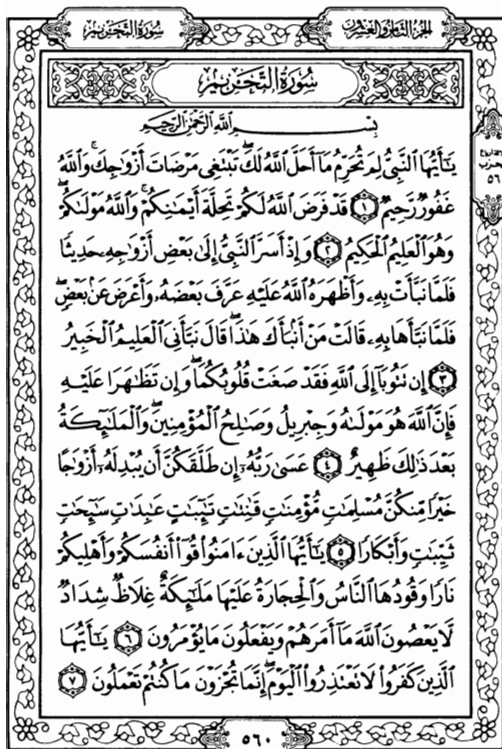 سُورَةُ التَّحْرِيمِ
الجزء الثامن والعشرون
سُورَةُ التَّحْرِيمِ
بِسْمِ اللَّهِ الرَّحْمَٰنِ الرَّحِيمِ
يَٰٓأَيُّهَا النَّبِيُّ لِمَ تُحَرِّمُ مَآ أَحَلَّ اللَّهُ لَكَۖ تَبْتَغِى مَرْضَاتَ أَزْوَٰجِكَۚ وَاللَّهُ
غَفُورٌ رَّحِيمٌ ۝١ قَدْ فَرَضَ اللَّهُ لَكُمْ تَحِلَّةَ أَيْمَٰنِكُمْۚ وَاللَّهُ مَوْلَىٰكُمْۖ
وَهُوَ الْعَلِيمُ الْحَكِيمُ ۝٢ وَإِذْ أَسَرَّ النَّبِيُّ إِلَىٰ بَعْضِ أَزْوَٰجِهِۦ حَدِيثًا
فَلَمَّا نَبَّأَتْ بِهِۦ وَأَظْهَرَهُ اللَّهُ عَلَيْهِ عَرَّفَ بَعْضَهُۥ وَأَعْرَضَ عَنۢ بَعْضٍۖ
فَلَمَّا نَبَّأَهَا بِهِۦ قَالَتْ مَنْ أَنۢبَأَكَ هَٰذَاۖ قَالَ نَبَّأَنِىَ الْعَلِيمُ الْخَبِيرُ
۝٣ إِن تَتُوبَآ إِلَى اللَّهِ فَقَدْ صَغَتْ قُلُوبُكُمَاۖ وَإِن تَظَٰهَرَا عَلَيْهِ
فَإِنَّ اللَّهَ هُوَ مَوْلَىٰهُ وَجِبْرِيلُ وَصَٰلِحُ الْمُؤْمِنِينَۖ وَالْمَلَٰٓئِكَةُ
بَعْدَ ذَٰلِكَ ظَهِيرٌ ۝٤ عَسَىٰ رَبُّهُۥٓ إِن طَلَّقَكُنَّ أَن يُبْدِلَهُۥٓ أَزْوَٰجًا
خَيْرًا مِّنكُنَّ مُسْلِمَٰتٍ مُّؤْمِنَٰتٍ قَٰنِتَٰتٍ تَٰٓئِبَٰتٍ عَٰبِدَٰتٍ سَٰٓئِحَٰتٍ
ثَيِّبَٰتٍ وَأَبْكَارًا ۝٥ يَٰٓأَيُّهَا الَّذِينَ ءَامَنُوا۟ قُوٓا۟ أَنفُسَكُمْ وَأَهْلِيكُمْ
نَارًا وَقُودُهَا النَّاسُ وَالْحِجَارَةُ عَلَيْهَا مَلَٰٓئِكَةٌ غِلَاظٌ شِدَادٌ
لَّا يَعْصُونَ اللَّهَ مَآ أَمَرَهُمْ وَيَفْعَلُونَ مَا يُؤْمَرُونَ ۝٦ يَٰٓأَيُّهَا
الَّذِينَ كَفَرُوا۟ لَا تَعْتَذِرُوا۟ الْيَوْمَۖ إِنَّمَا تُجْزَوْنَ مَا كُنتُمْ تَعْمَلُونَ ۝٧
٥٦٠